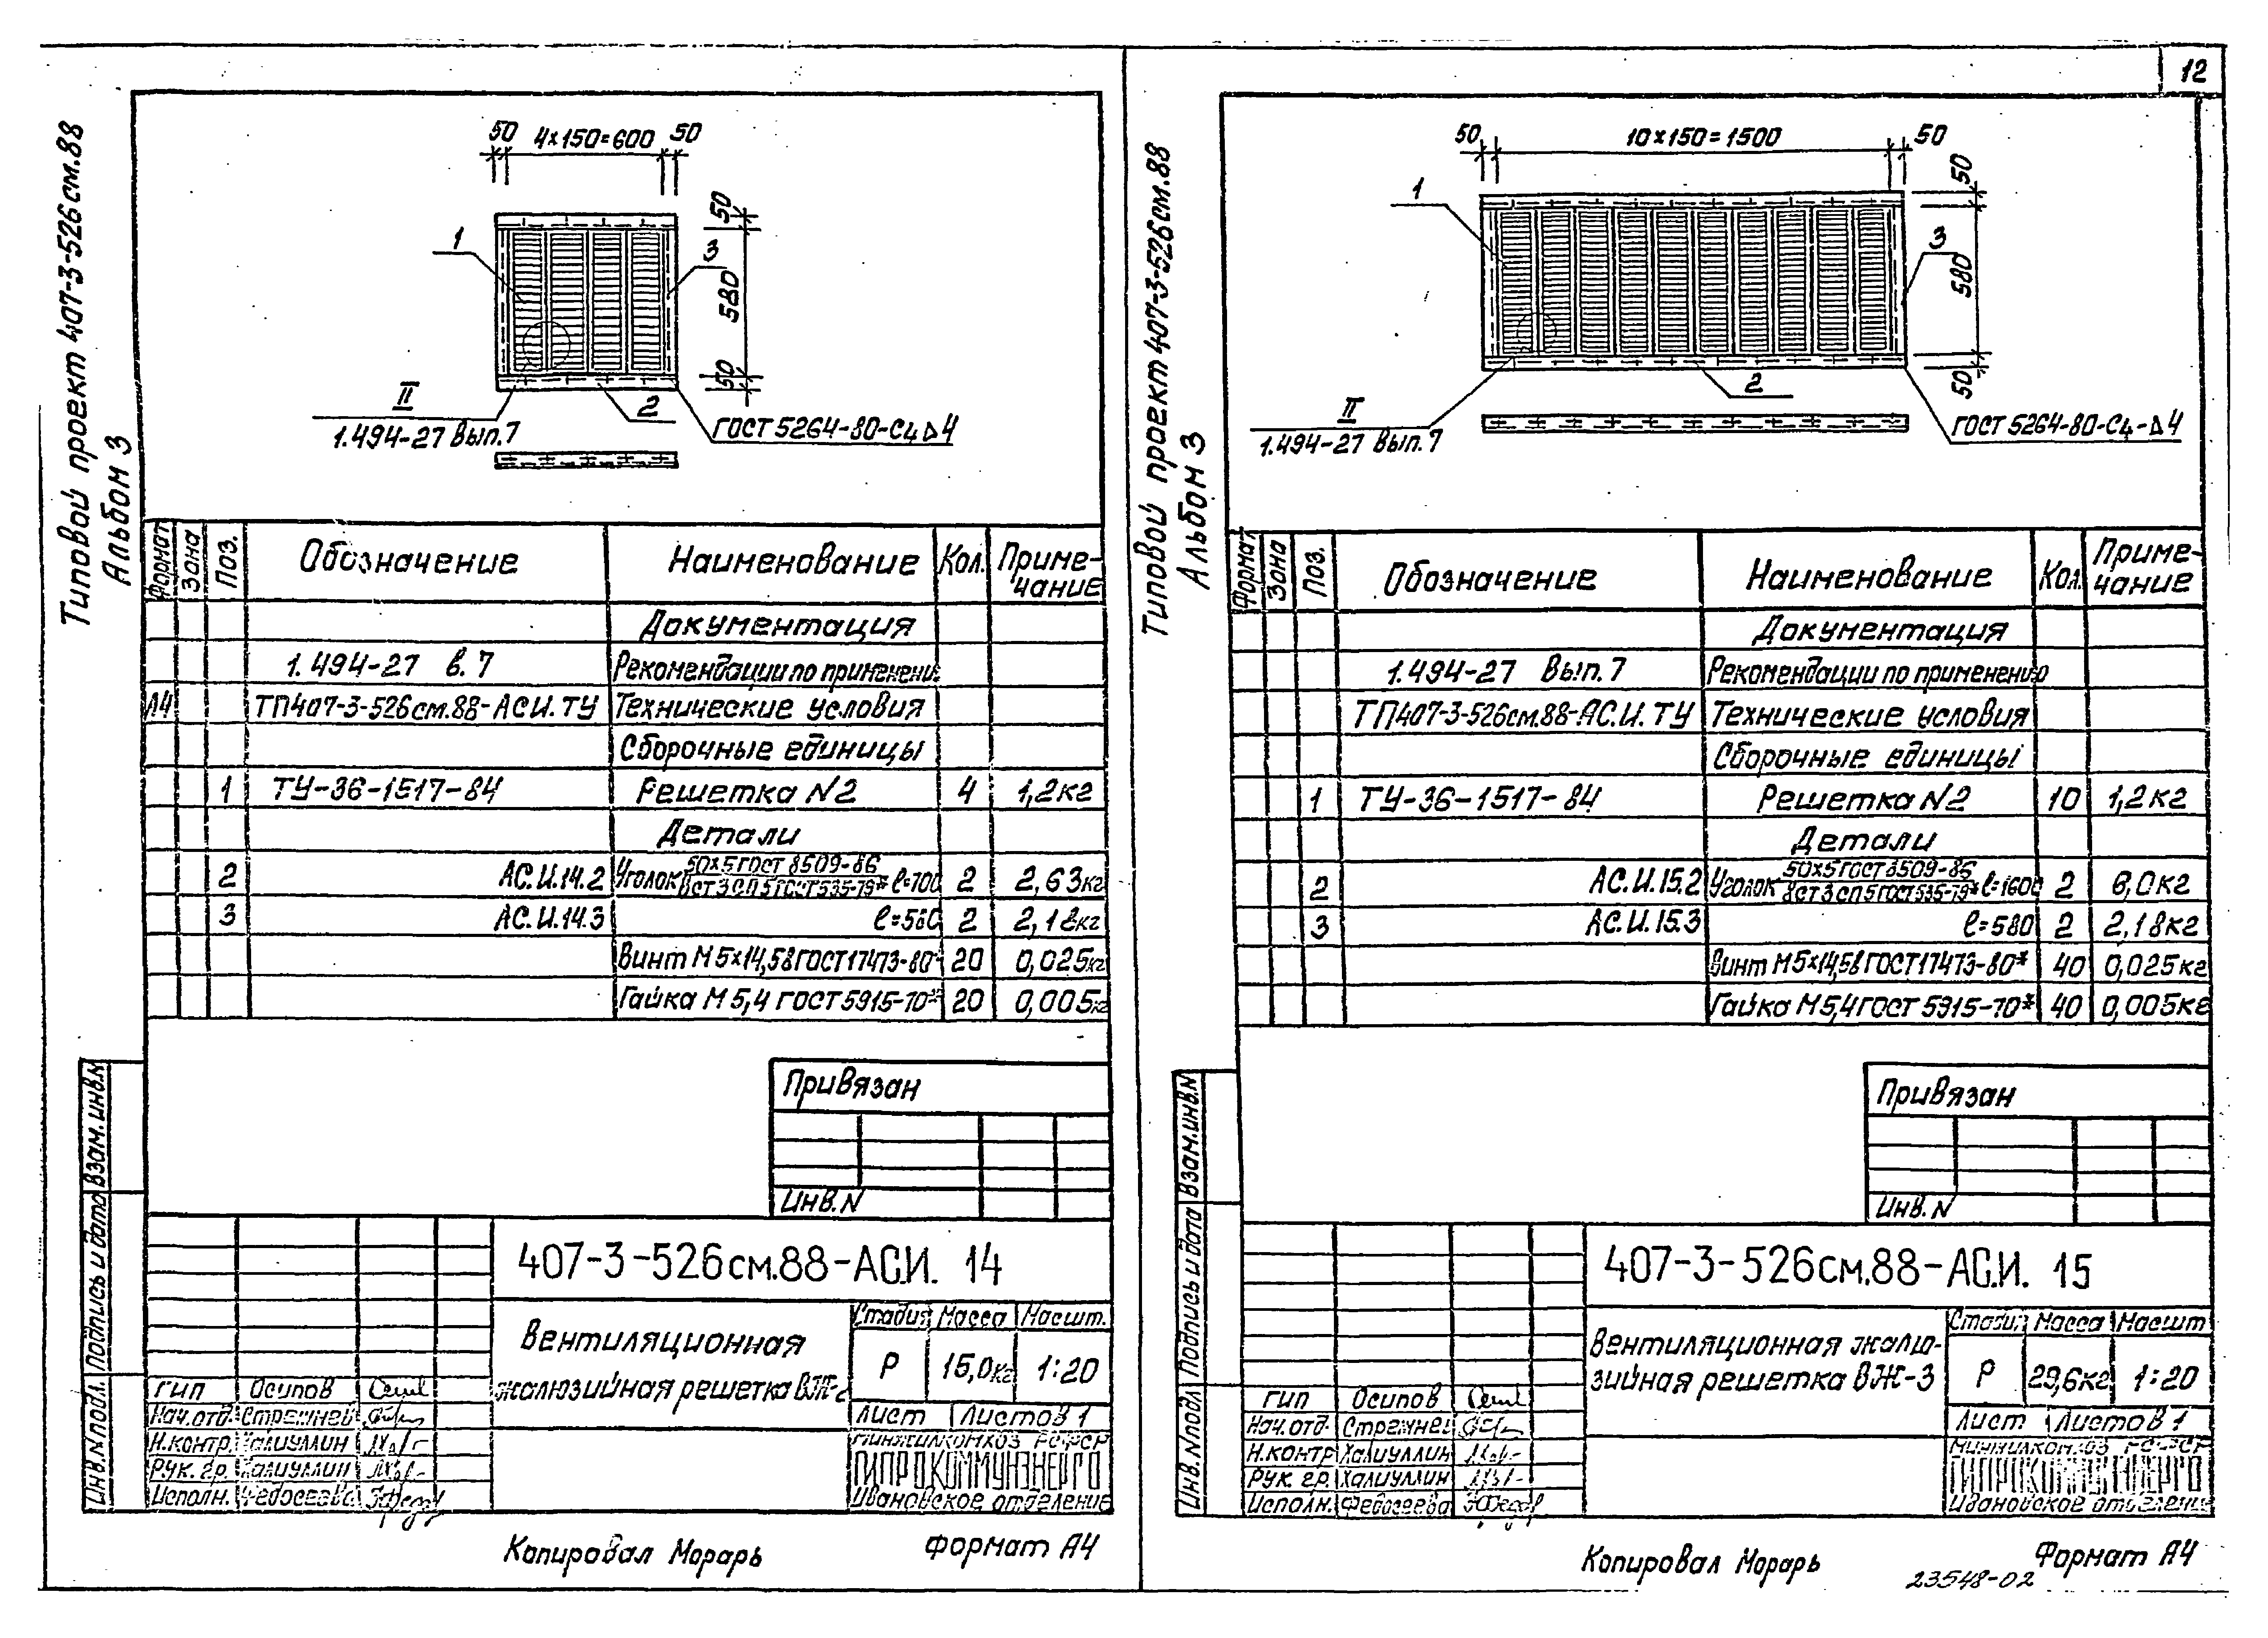 12
Типовой проект 407-3-526см.88
Альбом 3
50 4×150=600 50
50
580
50
1
3
2
II
1.494-27 Вып.7
ГОСТ 5264-80-С4 Δ4
Формат Зона Поз. Обозначение Наименование Кол. Приме-
чание
Документация
1.494-27 в.7 Рекомендации по применени
А4 ТП407-3-526см.88-АС.И.ТУ Технические условия
Сборочные единицы
1 ТУ-36-1517-84 Решетка N2 4 1,2кг
Детали
2 АС.И.14.2 Уголок 50×5 ГОСТ 8509-86
ВСТ3СП5 ГОСТ 535-79* ℓ=700 2 2,63кг
3 АС.И.14.3 ℓ=580 2 2,18кг
Винт М5×14,58 ГОСТ 17473-80* 20 0,025кг
Гайка М5,4 ГОСТ 5915-70* 20 0,005кг
Привязан
Инв.N
407-3-526см.88-АС.И. 14
Вентиляционная
жалюзийная решетка ВЖ-2
Стадия Масса Масшт.
Р 15,0кг 1:20
Лист Листов 1
Минжилкомхоз РСФСР
ГИПРОКОММУНЭНЕРГО
Ивановское отделение
ГИП Осипов
Нач.отд. Стрежнев
Н.контр. Халиуллин
Рук.гр. Халиуллин
Исполн. Федосеева
Взам.инв.N
Подпись и дата
Инв.N подл.
Копировал Морарь Формат А4
Типовой проект 407-3-526см.88
Альбом 3
50 10×150=1500 50
50
580
50
1
3
2
II
1.494-27 Вып.7
ГОСТ 5264-80-С4-Δ4
Формат Зона Поз. Обозначение Наименование Кол. Приме-
чание
Документация
1.494-27 Вып.7 Рекомендации по применению
ТП407-3-526см.88-АС.И.ТУ Технические условия
Сборочные единицы
1 ТУ-36-1517-84 Решетка N2 10 1,2кг
Детали
2 АС.И.15.2 Уголок 50×5 ГОСТ 8509-86
ВСТ3СП5 ГОСТ 535-79* ℓ=1600 2 6,0кг
3 АС.И.15.3 ℓ=580 2 2,18кг
Винт М5×14,58 ГОСТ 17473-80* 40 0,025кг
Гайка М5,4 ГОСТ 5915-70* 40 0,005кг
Привязан
Инв.N
407-3-526см.88-АС.И. 15
Вентиляционная жалю-
зийная решетка ВЖ-3
Стадия Масса Масшт
Р 29,6кг 1:20
Лист Листов 1
Минжилкомхоз РСФСР
ГИПРОКОММУНЭНЕРГО
Ивановское отделение
ГИП Осипов
Нач.отд. Стрежнев
Н.контр Халиуллин
Рук.гр. Халиуллин
Исполн. Федосеева
Взам.инв.N
Подпись и дата
Инв.N подл
Копировал Морарь Формат А4
23548-02